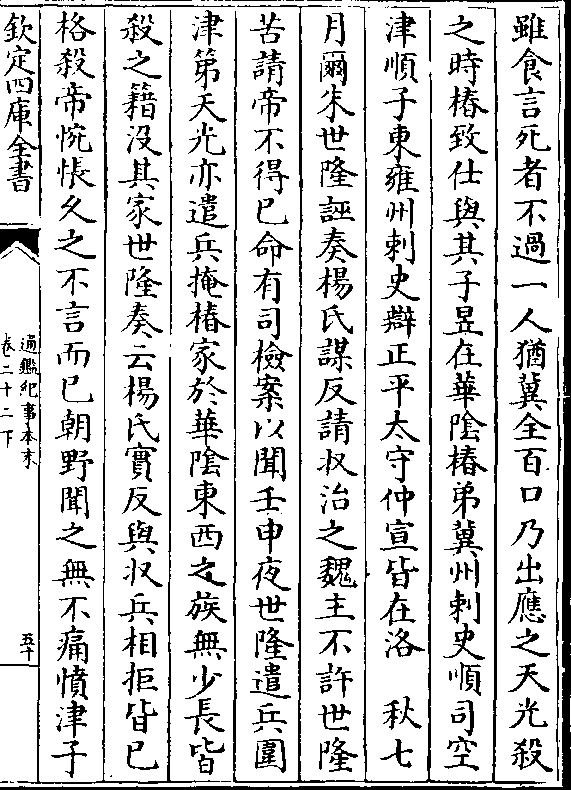 雖食言死者不過一人猶冀全百口乃出應之天光殺
之時椿致仕與其子昱在華陰椿弟冀州刺史順司空
津順子東雍州刺史辯正平太守仲宣皆在洛　秋七
月爾朱世隆誣奏楊氏謀反請収治之魏主不許世隆
苦請帝不得已命有司檢案以聞壬申夜世隆遣兵圍
津第天光亦遣兵掩椿家於華陰東西之族無少長皆
殺之籍沒其家世隆奏云楊氏實反與収兵相拒皆已
格殺帝惋悵久之不言而已朝野聞之無不痛憤津子
欽定四庫全書
通鑑紀事本末
卷二十二下
五十